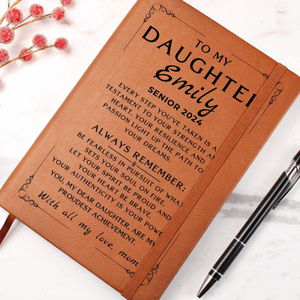 TO MY
DAUGHTE
Emily
SENIOR 2024
EVERY STEP YOU'VE TAKEN IS A
TESTAMENT TO YOUR STRENGTH
HEART. YOUR RESILIENCE AND
PASSION LIGHT UP THE PATH TO
YOUR DREAMS.
ALWAYS REMEMBER:
BE FEARLESS IN PURSUIT OF WHAT
SETS YOUR SOUL ON FIRE.
LET YOUR SPIRIT BE PROUD AND
YOUR HEART BE BRAVE.
YOUR AUTHENTICITY IS YOUR POWER AND
YOU, MY DEAR DAUGHTER, ARE MY
PROUDEST ACHIEVEMENT.
With all my love, mom